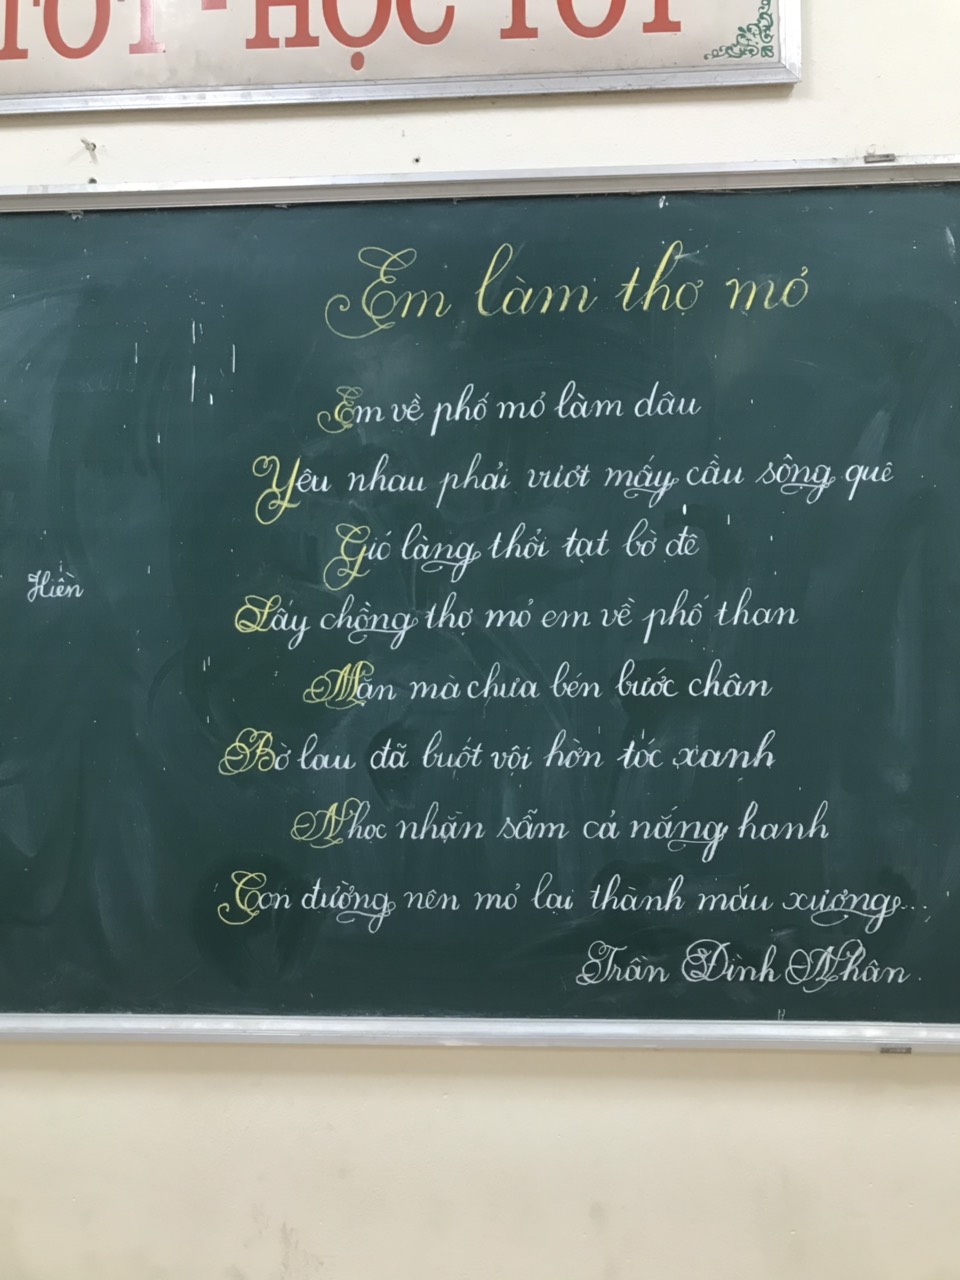 TỐT - HỌC TỐT
Em làm thợ mỏ
Em về phố mỏ làm dâu
Yêu nhau phải vượt mấy cầu sông quê
Gió làng thổi tạt bờ đê
Lấy chồng thợ mỏ em về phố than
Hiền
Mặn mà chưa bén bước chân
Bờ lau đã buốt vội hờn tóc xanh
Nhọc nhặn sẫm cả nắng hanh
Con đường nên mỏ lại thành máu xương...
Trần Đình Nhân.